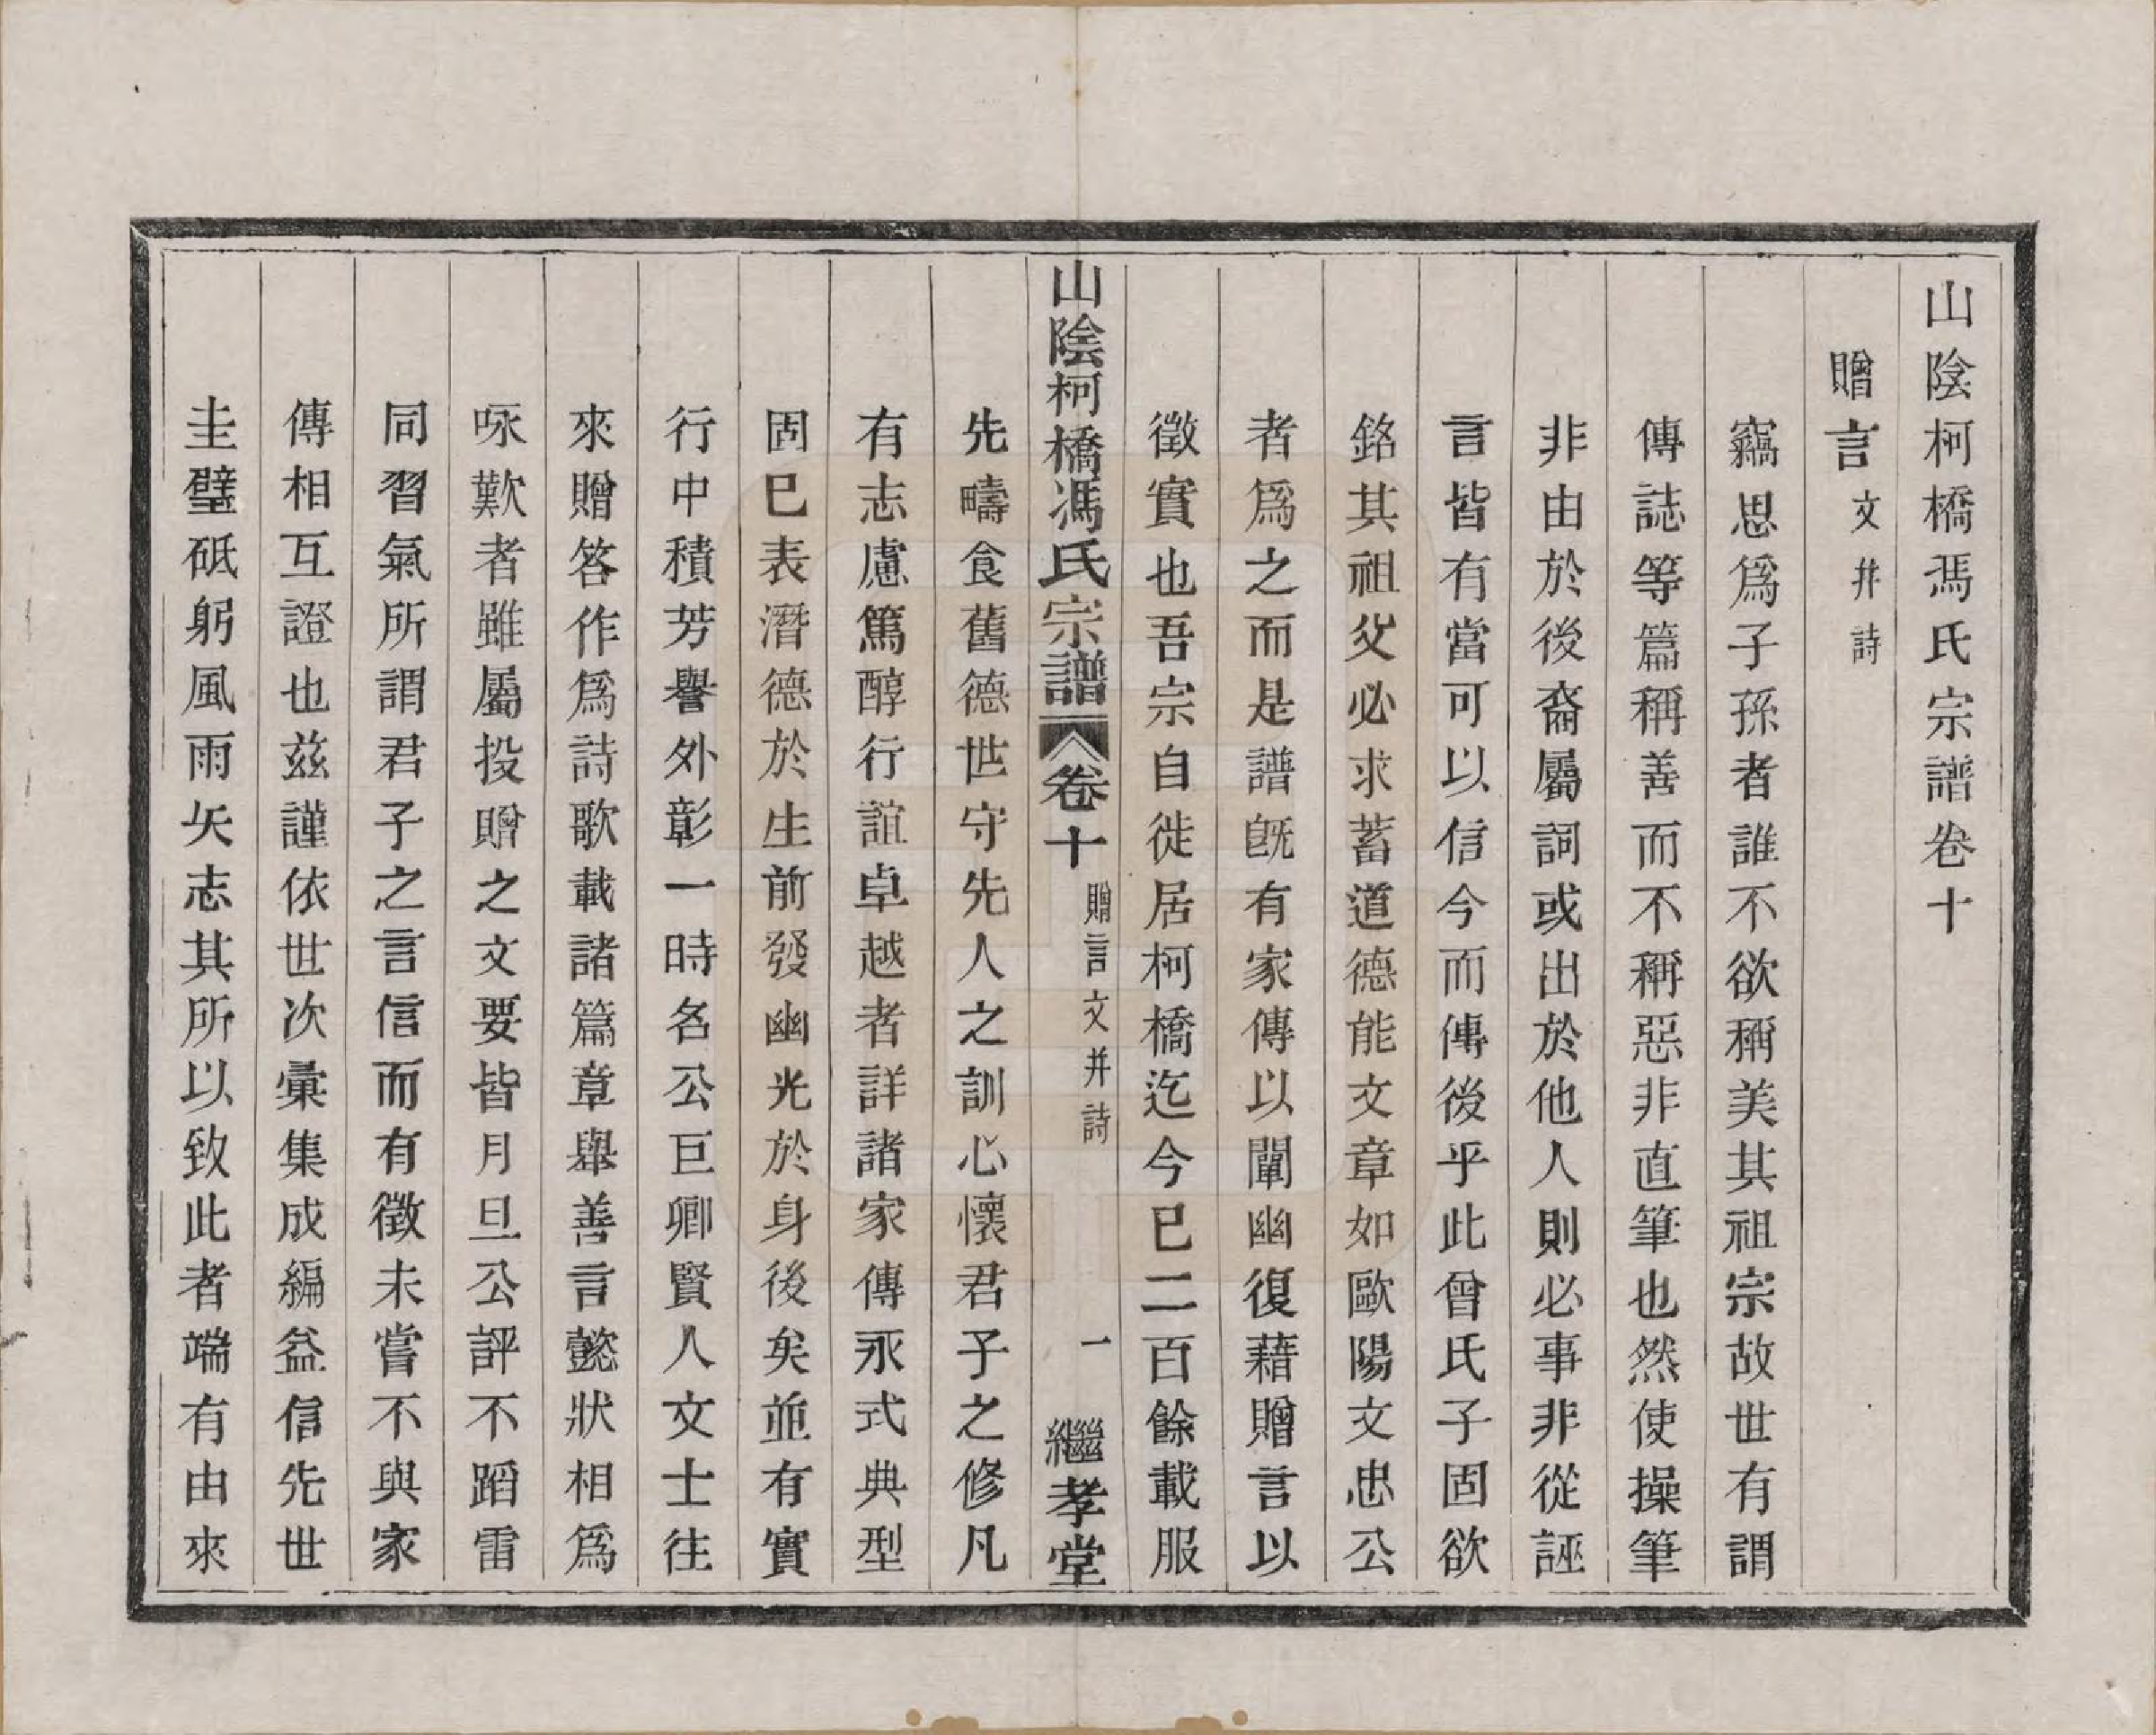 山陰柯橋馮氏宗譜卷十
贈言文并詩
竊思爲子孫者誰不欲稱美其祖宗故世有謂
傳誌等篇稱善而不稱惡非直筆也然使操筆
非由於後裔屬詞或出於他人則必事非從誣
言皆有當可以信今而傳後乎此曾氏子固欲
銘其祖父必求蓄道德能文章如歐陽文忠公
者爲之而是譜旣有家傳以闡幽復藉贈言以
徵實也吾宗自徙居柯橋迄今已二百餘載服
山陰柯橋馮氏宗譜 卷十 贈言文并詩 一 繼孝堂
先疇食舊德世守先人之訓心懷君子之修凡
有志慮篤醇行誼卓越者詳諸家傳永式典型
固已表潛德於生前發幽光於身後矣並有實
行中積芳譽外彰一時名公巨卿賢人文士往
來贈答作爲詩歌載諸篇章舉善言懿狀相爲
咏歎者雖屬投贈之文要皆月旦公評不蹈雷
同習氣所謂君子之言信而有徵未嘗不與家
傳相互證也茲謹依世次彙集成編益信先世
圭璧砥躬風雨矢志其所以致此者端有由來